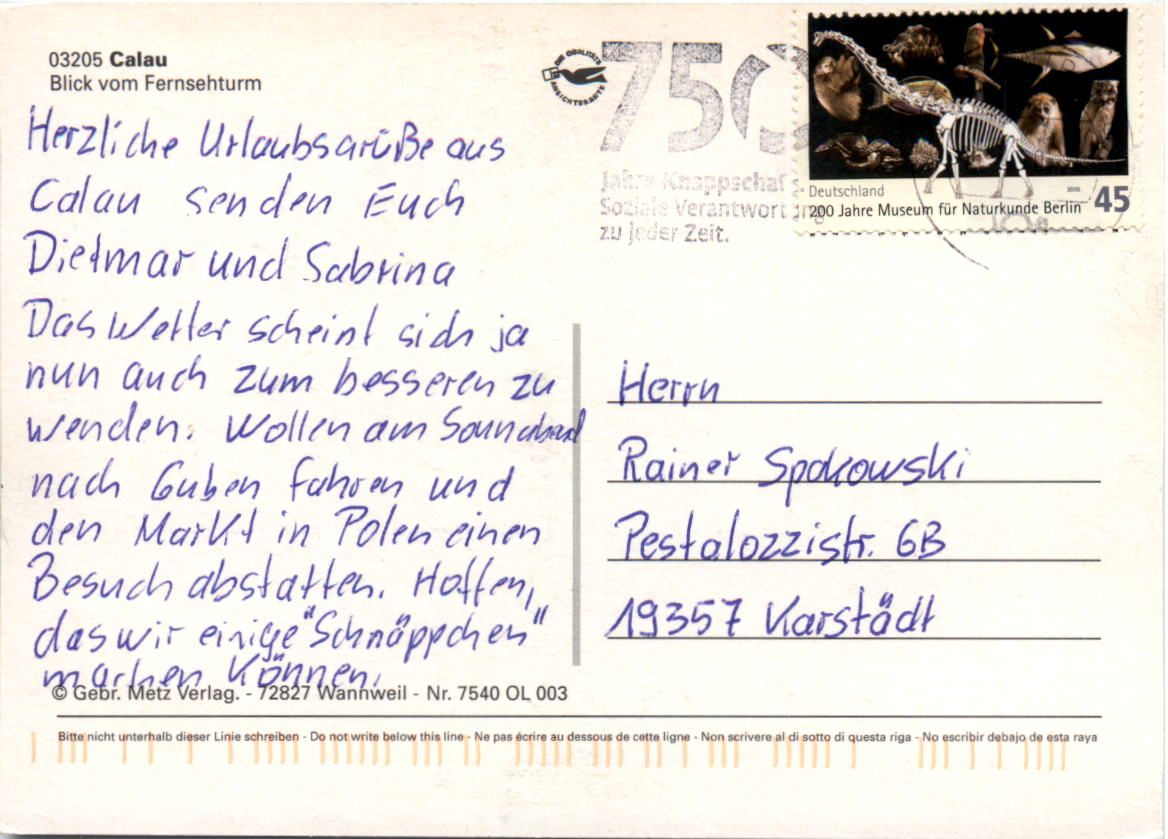 03205 Calau
Blick vom Fernsehturm
Herzliche Urlaubsgrüße aus
Calau senden Euch
Dietmar und Sabrina
Das Wetter scheint sich ja
nun auch zum besseren zu
wenden. Wollen am Sonnabend
nach Guben fahren und
den Markt in Polen einen
Besuch abstatten. Hoffen,
das wir einige "Schnäppchen"
machen können.
© Gebr. Metz Verlag. - 72827 Wannweil - Nr. 7540 OL 003
DIE QUALITÄTS
ANSICHTSKARTE
750
Jahre Knappschaft
Soziale Verantwortung
zu jeder Zeit.
Deutschland
2010
200 Jahre Museum für Naturkunde Berlin
45
Herrn
Rainer Spakowski
Pestalozzistr. 6B
19357 Karstädt
Bitte nicht unterhalb dieser Linie schreiben - Do not write below this line - Ne pas écrire au dessous de cette ligne - Non scrivere al di sotto di questa riga - No escribir debajo de esta raya